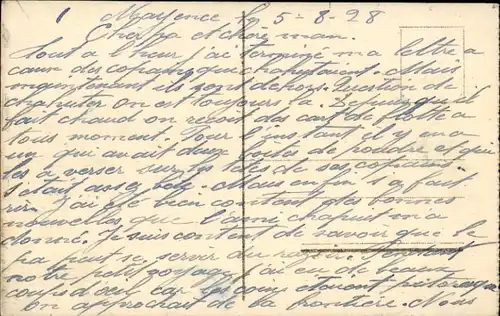 1 Mayence le 5-8-28
Cher pa et chère man.
Tout à l'heur j'ai terminé ma lettre a
cause des copains qui chahutaient. Mais
maintenant ils sont dehors. Question de
chahuter on est toujours là. Depuis qu'il
fait chaud on reçoit des de flotte a
tous moment. Pour l'instant il y en a
un qui avait deux boites de poudre et qui
les a verser sur les têtes de ses copains
s'était assez Mais enfin s'a fait
rire. J'ai été bien content des bonnes
nouvelles que l'ami chapuis m'a
donné. Je suis content de savoir que le
pa peut se servir du rasoir. Pendant
notre petit voyage j'ai eu de beaux
coups d'œil car les coins étaient pittoresques
on approchait de la frontière. Nous